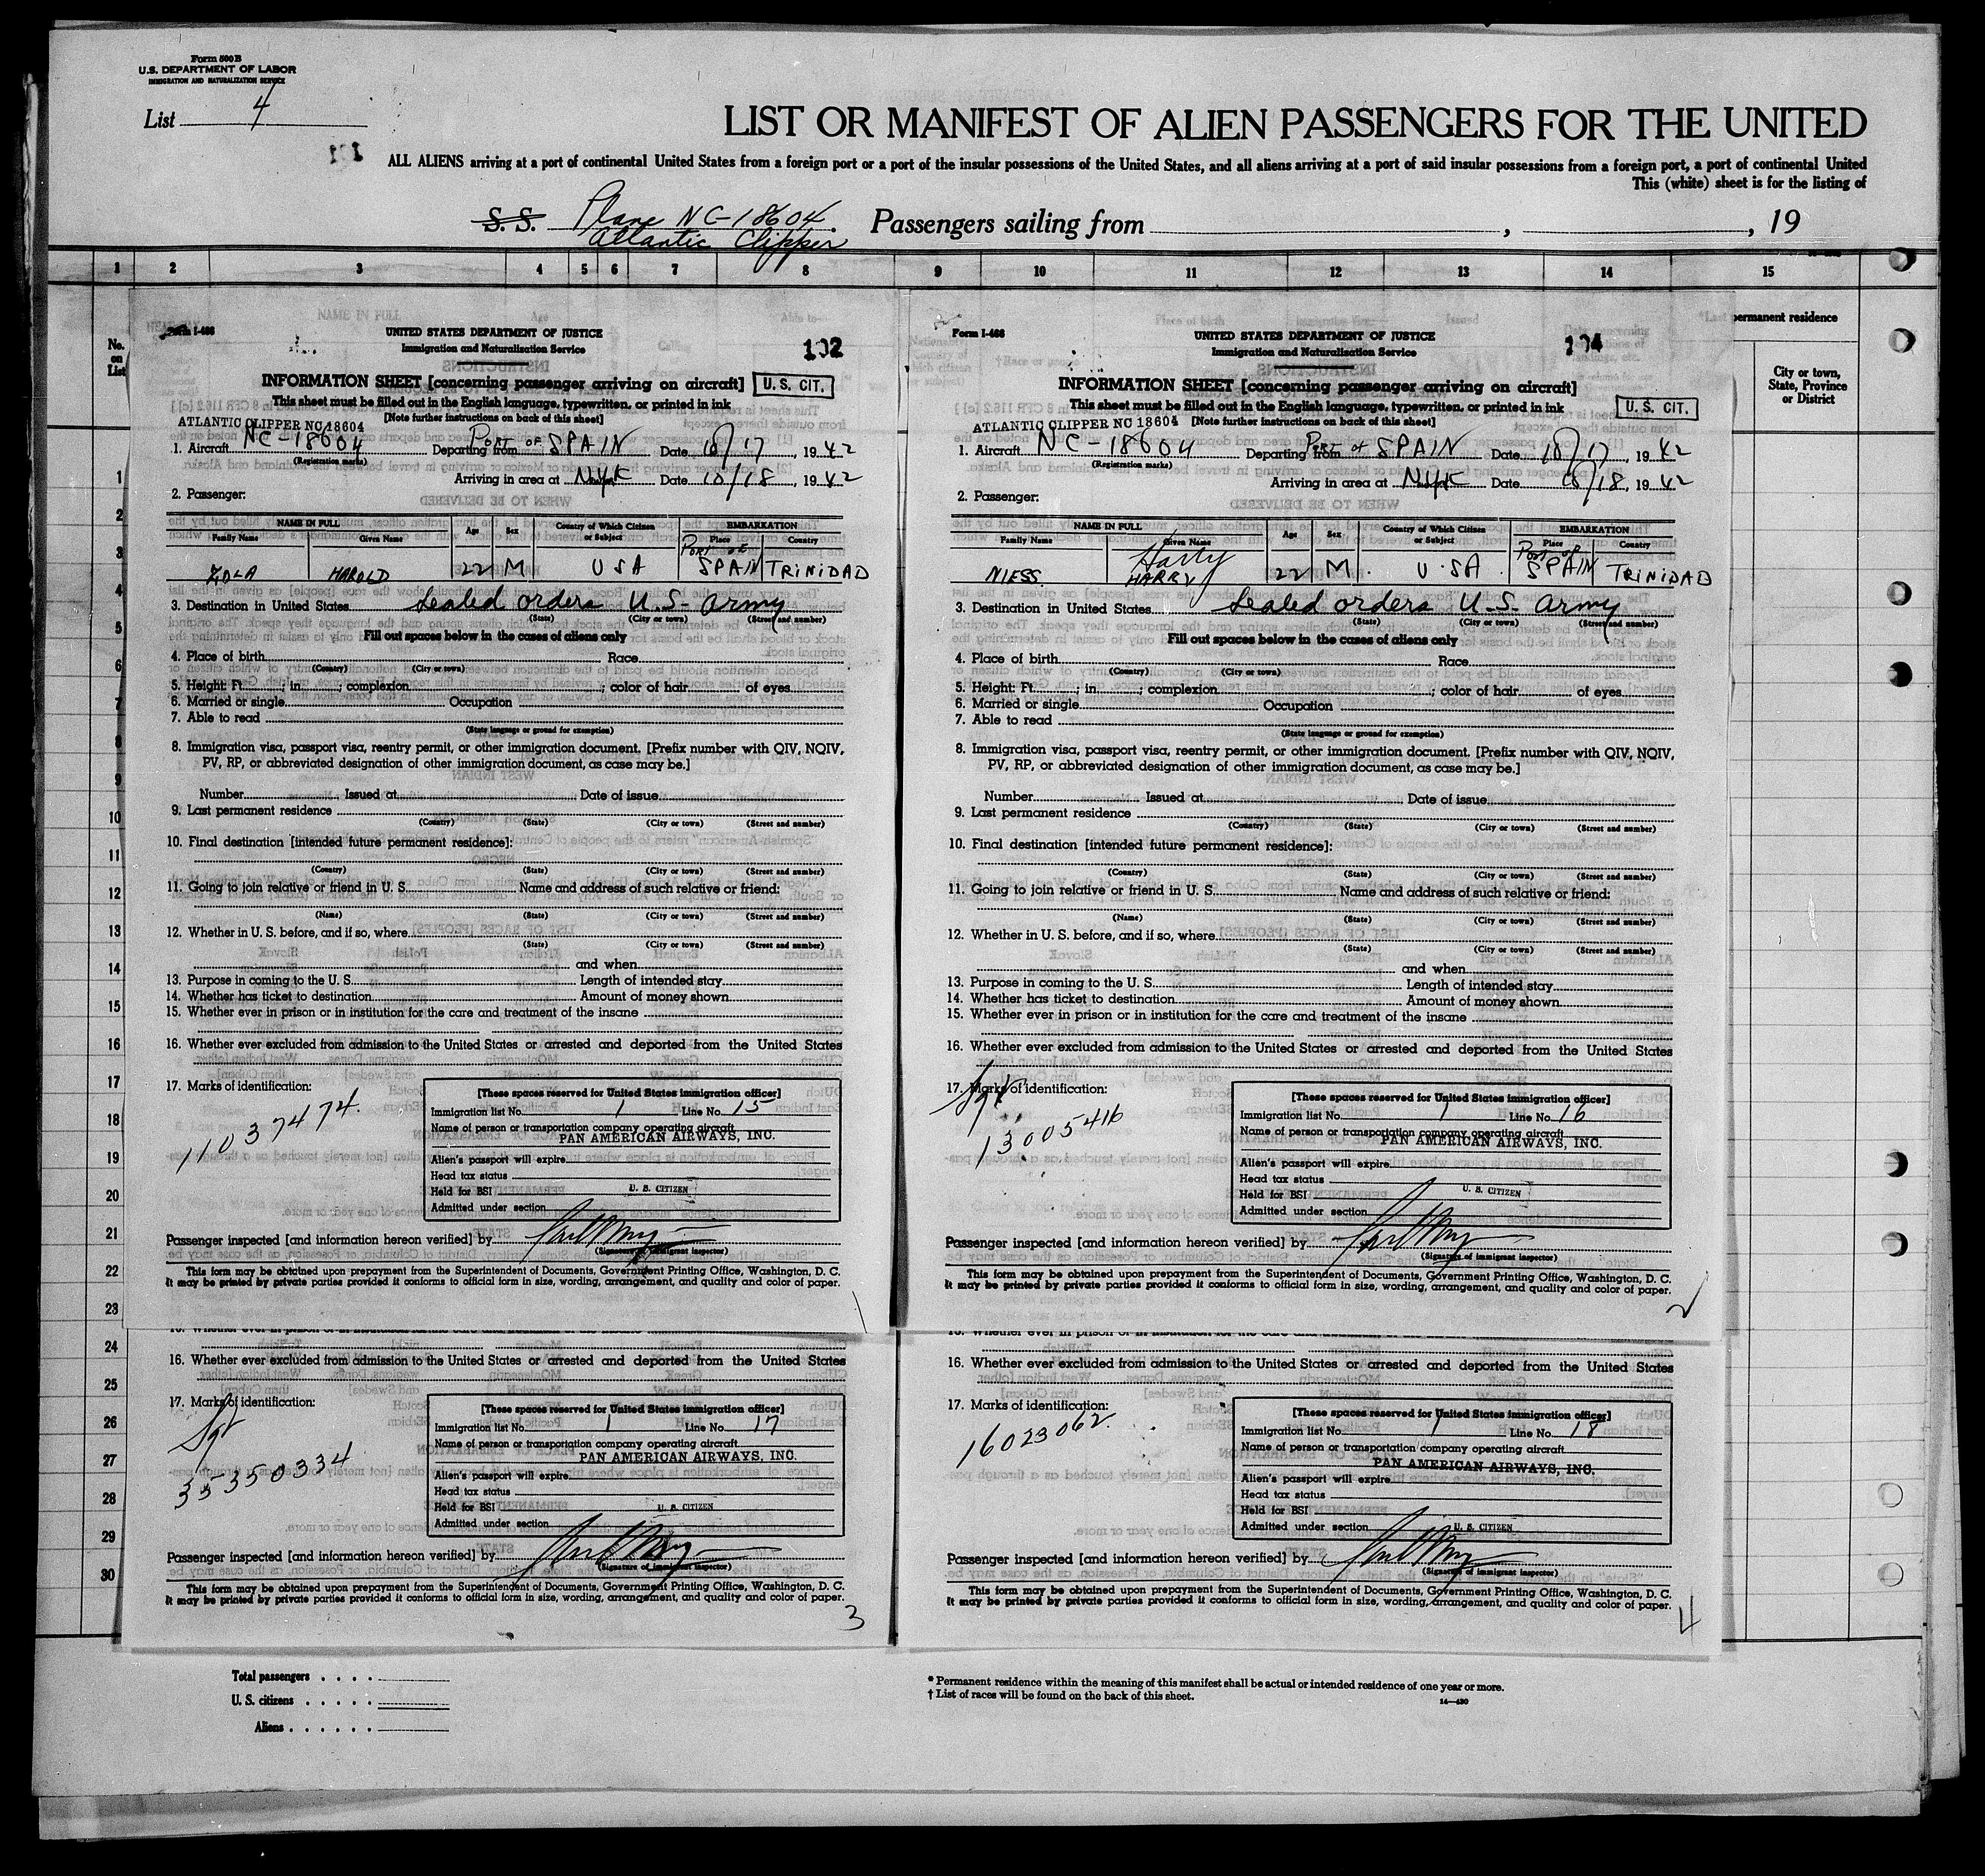 Form 500B
U.S. DEPARTMENT OF LABOR
IMMIGRATION AND NATURALIZATION SERVICE
List 4
LIST OR MANIFEST OF ALIEN PASSENGERS FOR THE UNITED
ALL ALIENS arriving at a port of continental United States from a foreign port or a port of the insular possessions of the United States, and all aliens arriving at a port of said insular possessions from a foreign port, a port of continental United
This (white) sheet is for the listing of
S. S. Plane NC-18604. Passengers sailing from , , 19
Atlantic Clipper
1 2 3 4 5 6 7 8 9 10 11 12 13 14 15
No. on List
permanent residence
City or town, State, Province or District
1
2
3
4
5
6
7
8
9
10
11
12
13
14
15
16
17
18
19
20
21
22
23
24
25
26
27
28
29
30
Form I-466
UNITED STATES DEPARTMENT OF JUSTICE
Immigration and Naturalization Service
102
INFORMATION SHEET [concerning passenger arriving on aircraft] U. S. CIT.
This sheet must be filled out in the English language, typewritten, or printed in ink
ATLANTIC CLIPPER NC 18604 [Note further instructions on back of this sheet]
1. Aircraft NC-18604 Departing from PORT OF SPAIN Date 10/17, 1942
(Registration marks)
Arriving in area at N.Y.K Date 10/18, 1942
2. Passenger:
NAME IN FULL Age Sex Country of Which Citizen or Subject EMBARKATION
Family Name Given Name Place Country
ZOLA HAROLD 22 M USA PORT OF SPAIN TRINIDAD
3. Destination in United States Sealed orders U.S. Army
(State) (City or town) (Street and number)
Fill out spaces below in the cases of aliens only
4. Place of birth Race
(Country) (City or town)
5. Height: Ft. ; in. ; complexion ; color of hair of eyes
6. Married or single Occupation
7. Able to read
(State language or ground for exemption)
8. Immigration visa, passport visa, reentry permit, or other immigration document. [Prefix number with QIV, NQIV,
PV, RP, or abbreviated designation of other immigration document, as case may be.]
Number Issued at Date of issue
9. Last permanent residence
(Country) (State) (City or town) (Street and number)
10. Final destination [intended future permanent residence]:
(Country) (State) (City or town) (Street and number)
11. Going to join relative or friend in U. S. Name and address of such relative or friend:
(Name) (State) (City or town) (Street and number)
12. Whether in U. S. before, and if so, where
(State) (City or town) (Street and number)
and when
13. Purpose in coming to the U. S. Length of intended stay
14. Whether has ticket to destination Amount of money shown
15. Whether ever in prison or in institution for the care and treatment of the insane
16. Whether ever excluded from admission to the United States or arrested and deported from the United States
17. Marks of identification:
11037474.
[These spaces reserved for United States immigration officer]
Immigration list No. 1 Line No. 15
Name of person or transportation company operating aircraft
PAN AMERICAN AIRWAYS, INC.
Alien's passport will expire
Head tax status
Held for BSI U. S. CITIZEN
Admitted under section
Passenger inspected [and information hereon verified] by
(Signature of immigrant inspector)
This form may be obtained upon prepayment from the Superintendent of Documents, Government Printing Office, Washington, D. C.
It may be printed by private parties provided it conforms to official form in size, wording, arrangement, and quality and color of paper.
1
Form I-466
UNITED STATES DEPARTMENT OF JUSTICE
Immigration and Naturalization Service
104
INFORMATION SHEET [concerning passenger arriving on aircraft]
This sheet must be filled out in the English language, typewritten, or printed in ink U. S. CIT.
ATLANTIC CLIPPER NC 18604 [Note further instructions on back of this sheet]
1. Aircraft NC-18604 Departing from PORT OF SPAIN Date 10/17, 1942
(Registration marks)
Arriving in area at N.Y.K Date 10/18, 1942
2. Passenger:
NAME IN FULL Age Sex Country of Which Citizen or Subject EMBARKATION
Family Name Given Name Place Country
Harry
NIESS. HARRY 22 M. U.S.A. PORT OF SPAIN TRINIDAD
3. Destination in United States Sealed orders U.S. Army
(State) (City or town) (Street and number)
Fill out spaces below in the cases of aliens only
4. Place of birth Race
(Country) (City or town)
5. Height: Ft. ; in. ; complexion ; color of hair of eyes
6. Married or single Occupation
7. Able to read
(State language or ground for exemption)
8. Immigration visa, passport visa, reentry permit, or other immigration document. [Prefix number with QIV, NQIV,
PV, RP, or abbreviated designation of other immigration document, as case may be.]
Number Issued at Date of issue
9. Last permanent residence
(Country) (State) (City or town) (Street and number)
10. Final destination [intended future permanent residence]:
(Country) (State) (City or town) (Street and number)
11. Going to join relative or friend in U. S. Name and address of such relative or friend:
(Name) (State) (City or town) (Street and number)
12. Whether in U. S. before, and if so, where
(State) (City or town) (Street and number)
and when
13. Purpose in coming to the U. S. Length of intended stay
14. Whether has ticket to destination Amount of money shown
15. Whether ever in prison or in institution for the care and treatment of the insane
16. Whether ever excluded from admission to the United States or arrested and deported from the United States
17. Marks of identification:
Sgt
13005416
[These spaces reserved for United States immigration officer]
Immigration list No. 1 Line No. 16
Name of person or transportation company operating aircraft
PAN AMERICAN AIRWAYS, INC.
Alien's passport will expire
Head tax status
Held for BSI U. S. CITIZEN
Admitted under section
Passenger inspected [and information hereon verified] by
(Signature of immigrant inspector)
This form may be obtained upon prepayment from the Superintendent of Documents, Government Printing Office, Washington, D. C.
It may be printed by private parties provided it conforms to official form in size, wording, arrangement, and quality and color of paper.
2
16. Whether ever excluded from admission to the United States or arrested and deported from the United States
17. Marks of identification:
Sgt
35350334
[These spaces reserved for United States immigration officer]
Immigration list No. 1 Line No. 17
Name of person or transportation company operating aircraft
PAN AMERICAN AIRWAYS, INC.
Alien's passport will expire
Head tax status
Held for BSI U. S. CITIZEN
Admitted under section
Passenger inspected [and information hereon verified] by
(Signature of immigrant inspector)
This form may be obtained upon prepayment from the Superintendent of Documents, Government Printing Office, Washington, D. C.
It may be printed by private parties provided it conforms to official form in size, wording, arrangement, and quality and color of paper.
3
16. Whether ever excluded from admission to the United States or arrested and deported from the United States
17. Marks of identification:
16023062.
[These spaces reserved for United States immigration officer]
Immigration list No. 1 Line No. 18
Name of person or transportation company operating aircraft
PAN AMERICAN AIRWAYS, INC.
Alien's passport will expire
Head tax status
Held for BSI
Admitted under section U. S. CITIZEN
Passenger inspected [and information hereon verified] by
(Signature of immigrant inspector)
This form may be obtained upon prepayment from the Superintendent of Documents, Government Printing Office, Washington, D. C.
It may be printed by private parties provided it conforms to official form in size, wording, arrangement, and quality and color of paper.
4
Total passengers
U. S. citizens
Aliens
* Permanent residence within the meaning of this manifest shall be actual or intended residence of one year or more.
† List of races will be found on the back of this sheet.
14—430